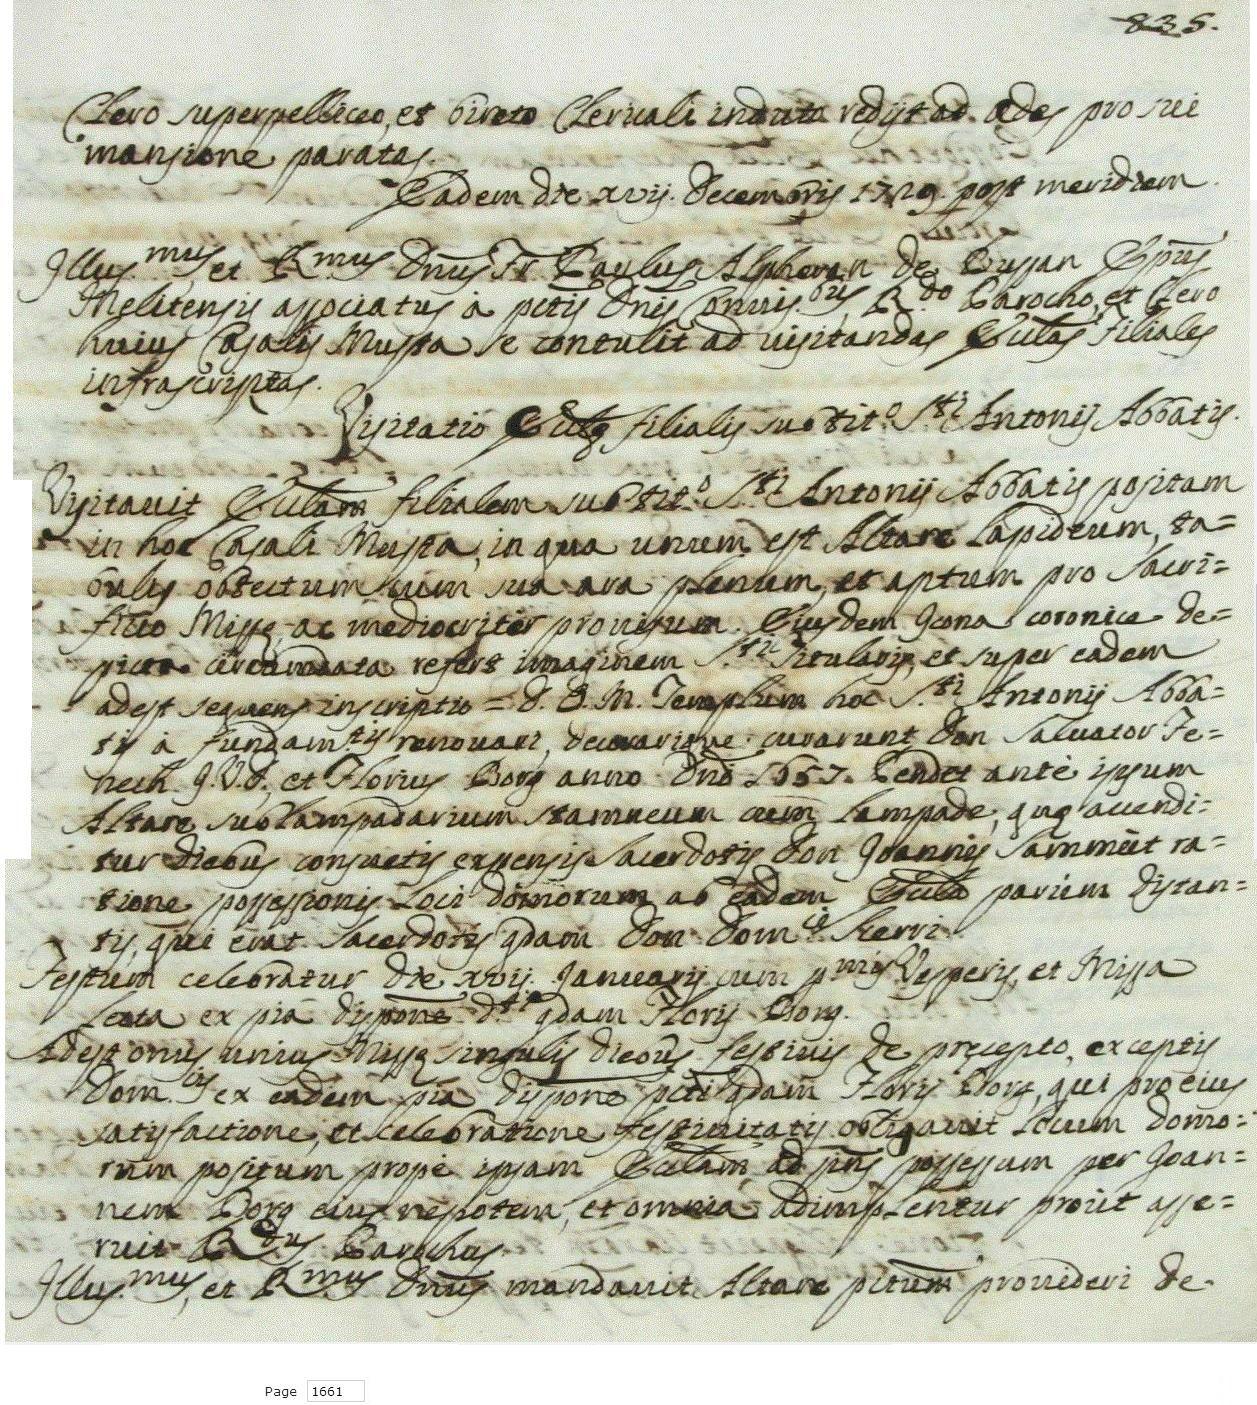 835.
Clero superpelliceo, et bireto Clericali induto redijt ad ędes pro sui
mansione paratas.
Eadem die xvij. Decembris 1729. post meridiem.
Illus.mus, et R.mus Dnus Fr. Paulus Alpheran de Bussan Epus
Melitensis associatus à pctis Dnis Convis.bus, R.do Parocho, et Clero
huius Casalis Musta se contulit ad visitandas Ecclas filiales
infrascriptas.
Visitatio Ecclę filialis sub tit.o S.ti Antonij Abbatis.
Visitavit Ecclam filialem sub tit.o S.ti Antonij Abbatis positam
in hoc Casali Musta, in qua unum est Altare lapideum, ta=
bulis obtectum cum sua ara plenum, et aptum pro sacri=
ficio Missę, ac mediocritèr provisum. Eiusdem Icona coronice de=
picta circumdata refert imaginem S.ti Titularis, et super eadem
adest sequens inscriptio = D. O. M. Templum hoc S.ti Antonij Abba=
tis à fundam.tis renovari, decorarique curarunt Don Salvator Fe=
nech J.V.D., et Florius Borg anno Dni 1657. Pendet antè ipsum
Altare sub lampadarium stamneum cum lampade, quę accendi=
tur diebus consuetis expensis Sacerdotis Don Joannis Sammut ra=
tione possessionis loci domorum ab eadem Eccla parùm distan=
tis, qui erat Sacerdotis qdam Don Dom.ci Xerri.
Festum celebratur die xvij. Januarij cum p.mis Vesperis, et Missa
lecta ex pia dispone d.ti qdam Florij Borg.
Adest onus unius Missę singulis diebus festivis de pręcepto, exceptis
Dom.cis ex eadem pia dispone pcti qdam Florij Borg, qui pro eius
satisfactione, et celebratione festivitatis obligavit locum domo=
rum positum propè ipsam Ecclam, ad pns possessum per Joan=
nem Borg eius nepotem, et omnia adimplentur prout asse=
ruit R.dus Parochus.
Illus.mus, et R.mus Dnus mandavit Altare pctum provideri de
Page 1661